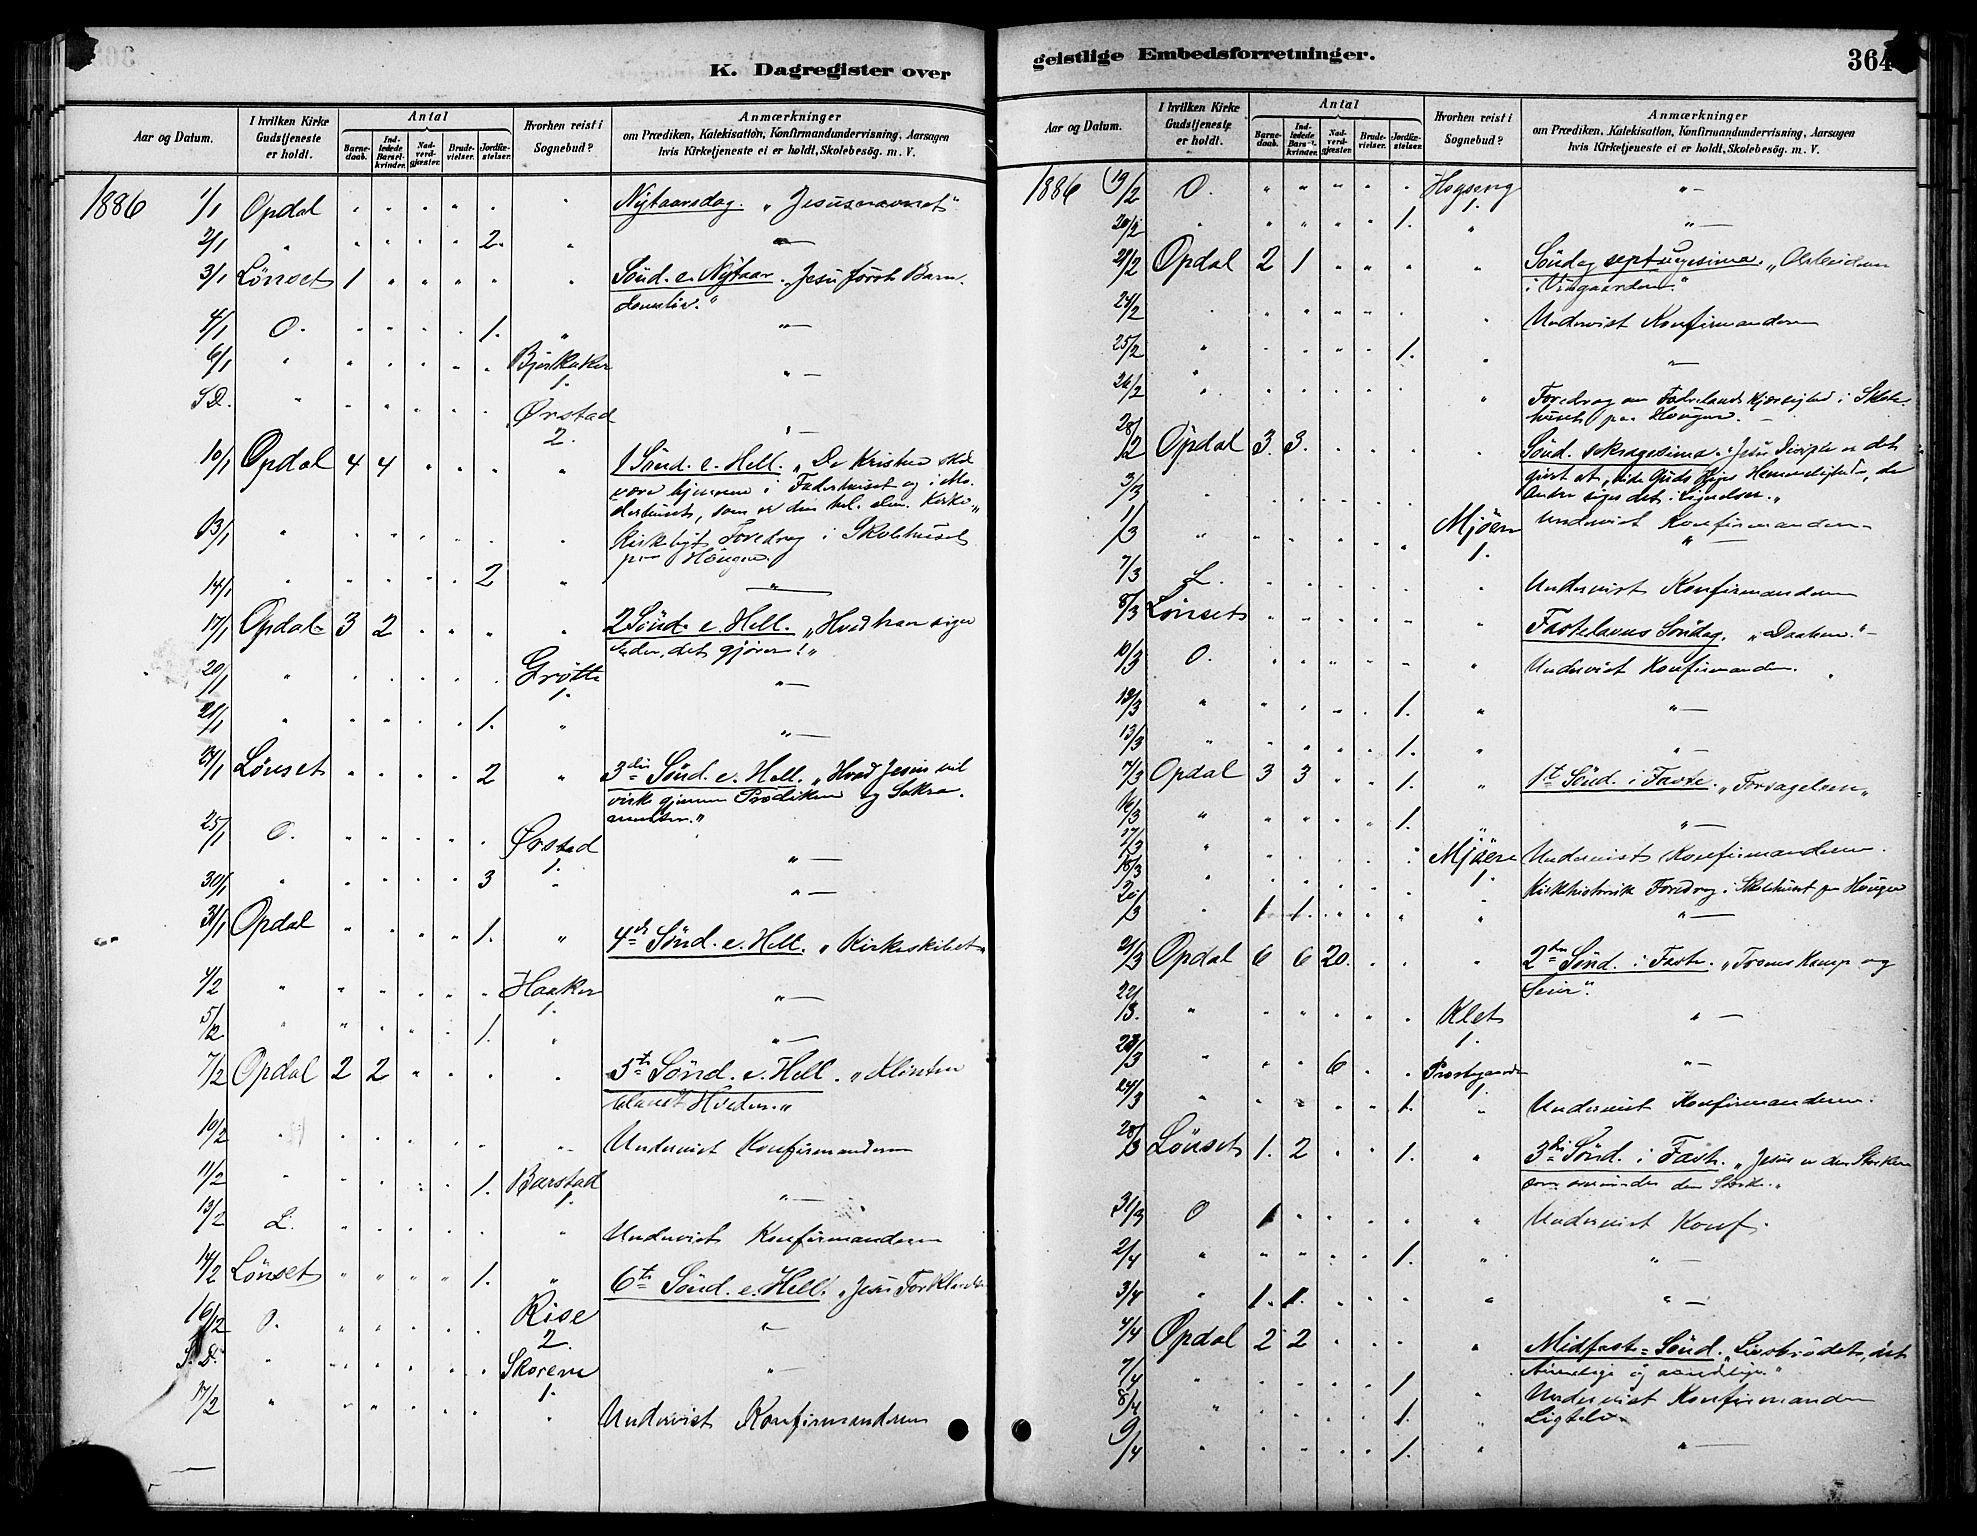 K. Dagregister over
Aar og Datum. I hvilken Kirke Gudstjeneste er holdt. Antal Barne-daab. Ind-ledede Barsel-kvinder. Nad-verd-gjæster. Brude-vielser. Jordfæ-stelser. Hvorhen reist i Sognebud? Anmærkninger
om Prædiken, Katekisation, Konfirmandundervisning, Aarsagen
hvis Kirketjeneste ei er holdt, Skolebesøg. m. V.
1886 1/1 Opdal Nytaarsdag. „Jesusnavnet“
2/1 " 2. "
3/1 Lönset 1 Sönd. e. Nytaar. „Jesu först Barn-
domsliv.“
4/1 O. 1. "
6/1 " Bjerkaker 1. "
S.D. " Örstad 2. "
10/1 Opdal 4 4 1 Sönd. e. Hell. „De Kristne skal
være hjemme i Faderhuset og i Mo-
derhuset, som er den hel. alm. Kirke.“
13/1 " Foredrag i Skolehuset
paa Hougen.
14/1 " 2 "
17/1 Opdal 3 2 2 Sönd. e. Hell. „Hvad han siger
Eder, det gjörer!“
20/1 " Grötte 1. "
21/1 " 1. "
24/1 Lönset 2 3die Sönd. e. Hell. „Hvad Jesus vil
virke gjennem Prædiken og Sakra-
menter.“
25/1 O. Örstad 1. "
30/1 " 3 "
31/1 Opdal 1. 4de Sönd. e. Hell. „Kirkeskibet“
4/2 " Haaker 1. "
5/2 " 1. "
7/2 Opdal 2 2 5te Sönd. e. Hell. „Klinten
blandt Hveden.“
10/2 " Undervist Konfirmanderne
11/2 " 1. Barstad 1. "
13/2 L. Undervist Konfirmanderne
14/2 Lönset 1. 6te Sönd. e. Hell. „Jesu Forklarelse
16/2 O. Rise 2. "
S.D. " Skorem 1. "
17/2 " Undervist Konfirmanderne
geistlige Embedsforretninger. 364
Aar og Datum. I hvilken Kirke Gudstjeneste er holdt. Antal Barne-daab. Ind-ledede Barsel-kvinder. Nad-verd-gjæster. Brude-vielser. Jordfæ-stelser. Hvorhen reist i Sognebud? Anmærkninger
om Prædiken, Katekisation, Konfirmandundervisning, Aarsagen
hvis Kirketjeneste ei er holdt, Skolebesøg. m. V.
1886 19/2 O. Hogseng 1. "
20/2 " 1. "
21/2 Opdal 2 1 Söndag septuagesima. „Arbeiderne
i Vingaarden.“
24/2 Undervist Konfirmanderne
25/2 " 1. "
26/2 " Foredrag om Fædrelandskjærlighed i Skole-
huset paa Hougen.
28/2 Opdal 3. 3. Sönd. seksagesima. „Jesu Disciple er det
givet at vide Guds Riges Hemmeligheder, de
Andre siges det i Lignelser.“
3/3 " Undervist Konfirmanderne
1/3 " Mjöen 1. "
7/3 L. Undervist Konfirmanderne
8/3 Lönset Fastelavns Söndag. „Daaben.“
10/3 O. Undervist Konfirmanderne.
12/3 " 1. "
13/3 " 1. "
14/3 Opdal 3 3 1. 1ste Sönd. i Faste. „Forsagelsen“
16/3 " 1. "
17/3 " Mjöen 1. Undervist Konfirmanderne.
18/3 " Kirkehistorisk Foredrag i Skolehuset paa Hougen
20/3 " 1 1. "
21/3 Opdal 6 6 20. 2den Sönd. i Faste. „Troens Kamp og
Seier“.
22/3. " Klet 1. "
23/3 " 6 Prestegaarden 1. "
24/3 " 1. Undervist Konfirmanderne.
28/3 Lönset 1. 2 1. 3die Sönd. i Faste. „Jesus er den Sterkere
som overvinder den Sterke.“
31/3 O 1 Undervist Konf.
2/4 " 1. "
3/4 " 1. 1. "
4/4 Opdal 2 2 Midfaste-Sönd. „Livsbrödet, det
timelige og aandelige.“
7/4 " 1 Undervist Konfirmanderne
8/4 " 1. Ligtale
9/4 " 1. "